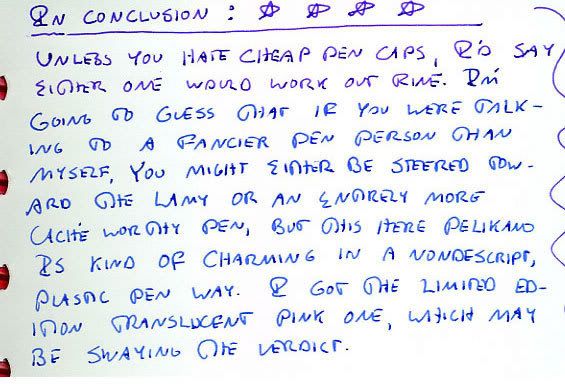 IN CONCLUSION : ☆ ☆ ☆ ☆
UNLESS YOU HATE CHEAP PEN CAPS, I'D SAY
EITHER ONE WOULD WORK OUT FINE. I'M
GOING TO GUESS THAT IF YOU WERE TALK-
ING TO A FANCIER PEN PERSON THAN
MYSELF, YOU MIGHT EITHER BE STEERED TOW-
ARD THE LAMY OR AN ENTIRELY MORE
CACHÉ WORTHY PEN, BUT THIS HERE PELIKANO
IS KIND OF CHARMING IN A NONDESCRIPT,
PLASTIC PEN WAY. I GOT THE LIMITED ED-
ITION TRANSLUCENT PINK ONE, WHICH MAY
BE SWAYING THE VERDICT.